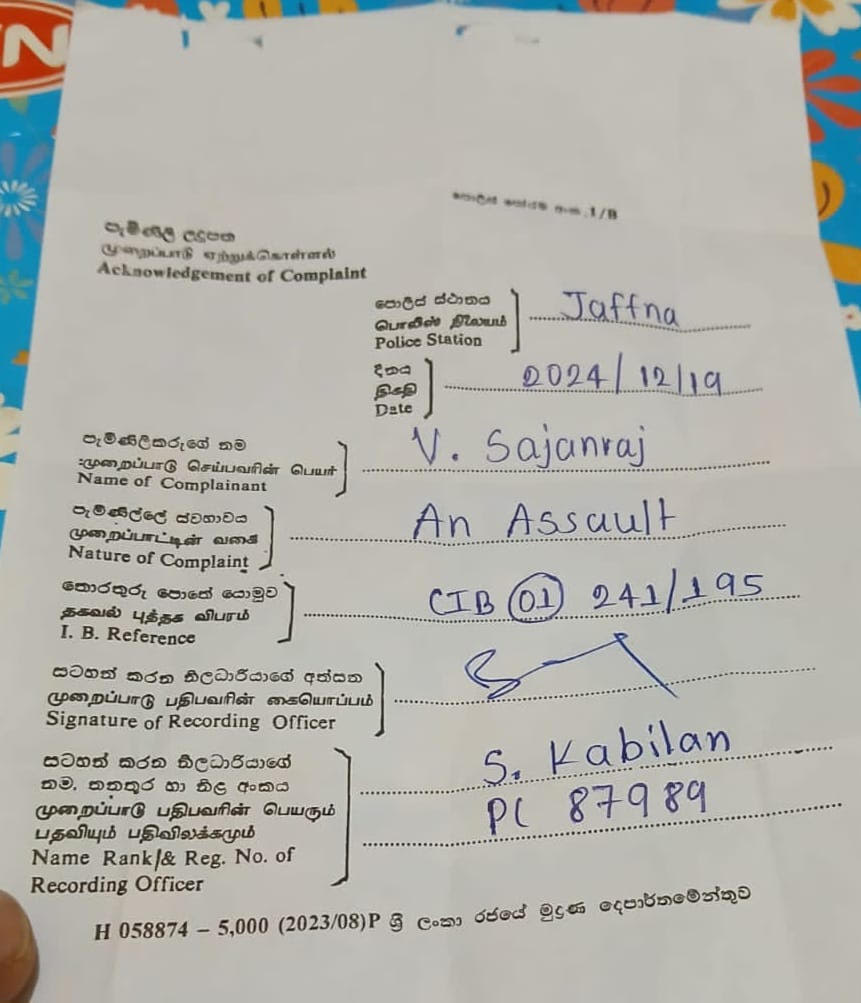 N
පොලිස් පෝරම අංක .1/B
පැමිණිලි ලදුපත
முறைப்பாடு ஏற்றுக்கொள்ளல்
Acknowledgement of Complaint
පොලිස් ස්ථානය
பொலிஸ் நிலையம்
Police Station
Jaffna
දිනය
திகதி
Date
2024/12/19
පැමිණිලිකරුගේ නම
முறைப்பாடு செய்பவரின் பெயர்
Name of Complainant
V. Sajanraj
පැමිණිල්ලේ ස්වභාවය
முறைப்பாட்டின் வகை
Nature of Complaint
An Assault
තොරතුරු පොතේ යොමුව
தகவல் புத்தக விபரம்
I. B. Reference
CIB 01 241/195
සටහන් කරන නිලධාරියාගේ අත්සන
முறைப்பாடு பதிபவரின் கையொப்பம்
Signature of Recording Officer
සටහන් කරන නිලධාරියාගේ
නම, තනතුර හා නිල අංකය
முறைப்பாடு பதிபவரின் பெயரும்
பதவியும் பதிவிலக்கமும்
Name Rank/& Reg. No. of
Recording Officer
S. Kabilan
PC 87989
H 058874 – 5,000 (2023/08)P ශ්‍රී ලංකා රජයේ මුද්‍රණ දෙපාර්තමේන්තුව